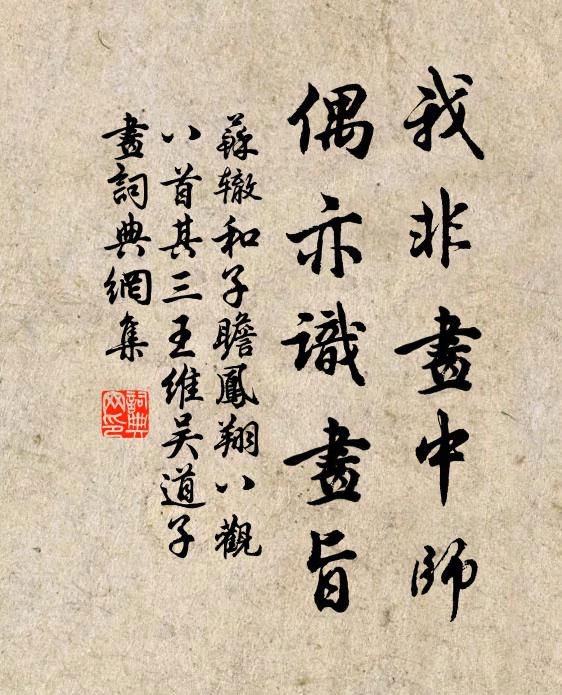 我非畫中師
偶亦識畫旨
蘇辙和子瞻鳳翔八觀
八首其三王維吴道子
畫詞典網集
詞典网印